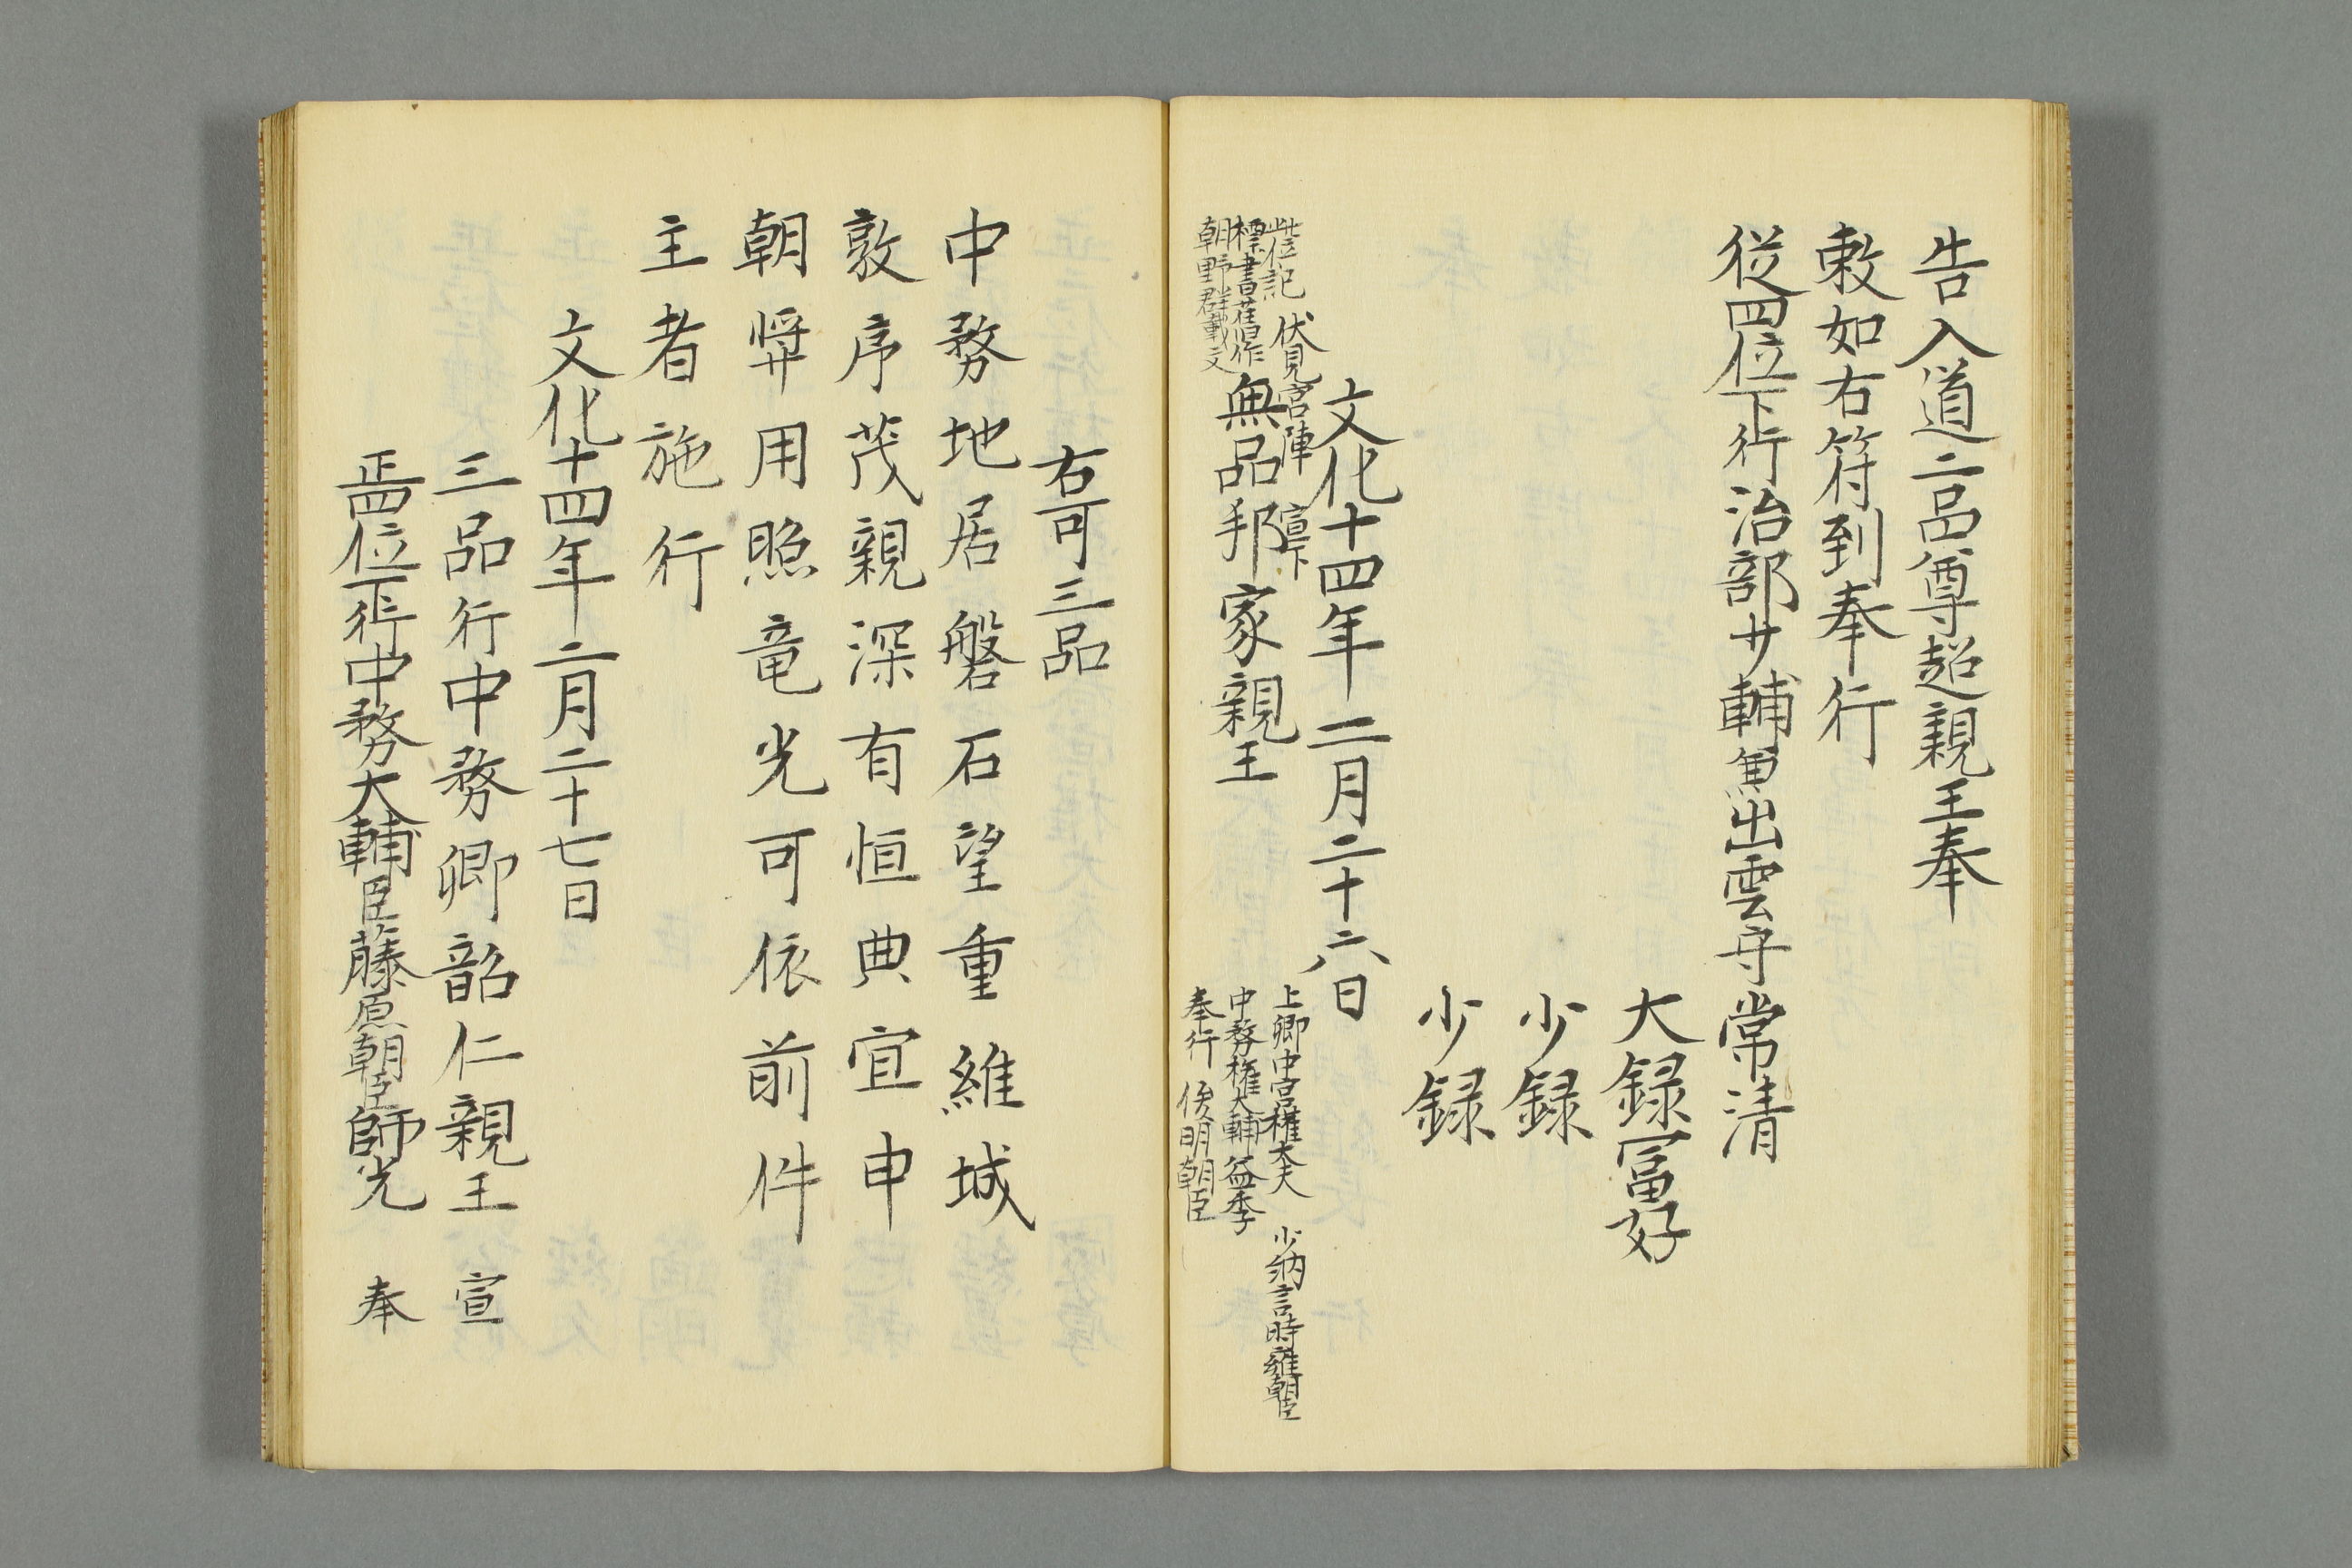 告入道二品尊超親王奉
敕如右符到奉行
従四位下行治部少輔兼出雲守常清
大録冨好
少録
少録
文化十四年二月二十六日
此位記
標書旧作
朝野群載文
伏見宮陣
宣下
無品邦家親王
上卿中宮権大夫 少納言時雍朝臣
中務権大輔益季
奉行 俊明朝臣
右可三品
中務地居磐石望重維城
敦序茂親深有恒典宜申
朝奨用照竜光可依前件
主者施行
文化十四年二月二十七日
三品行中務卿韶仁親王 宣
正四位下行中務大輔臣藤原朝臣師光 奉